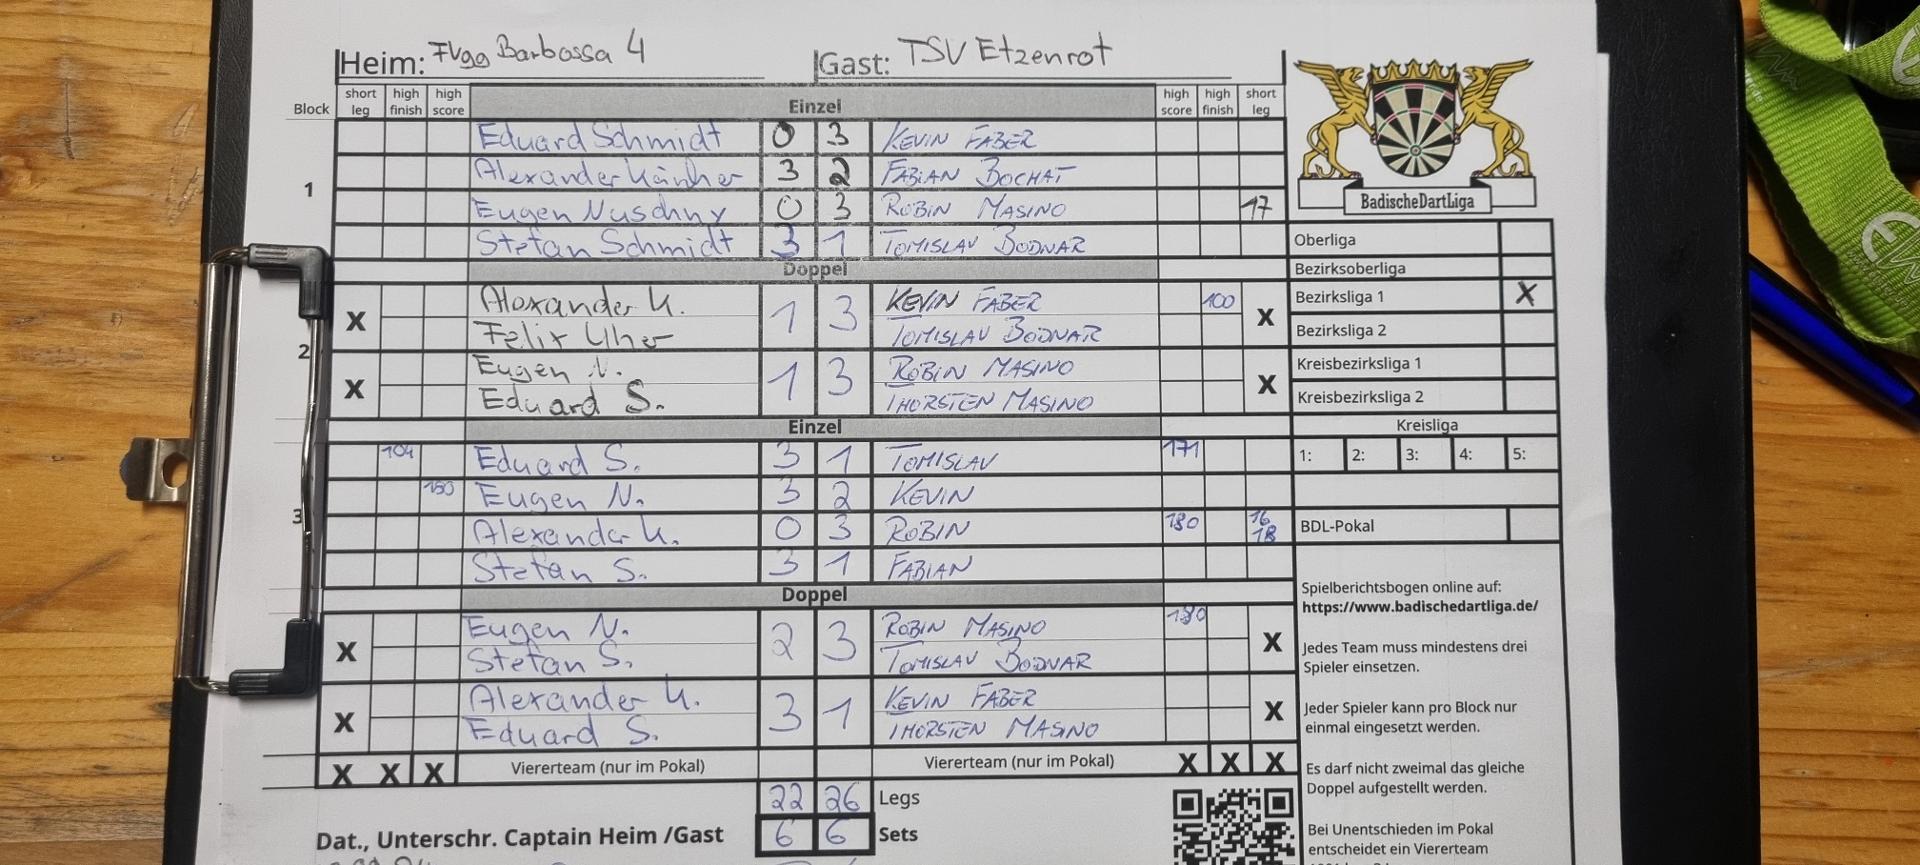 Heim: FVgg Barbossa 4 Gast: TSV Etzenrot
Block short leg high finish high score Einzel high score high finish short leg
Eduard Schmidt 0 3 KEVIN FABER
Alexander 3 2 FABIAN BOCHAT
1
Eugen Nuschny 0 3 ROBIN MASINO 17
Stefan Schmidt 3 1 TOMISLAV BODNAR
Doppel
X Alexander K. 1 3 KEVIN FABER 100 X
Felix Uher TOMISLAV BODNAR
2
X Eugen N. 1 3 ROBIN MASINO X
Eduard S. THORSTEN MASINO
Einzel
104 Eduard S. 3 1 TOMISLAV 171
180 Eugen N. 3 2 KEVIN
3
Alexander K. 0 3 ROBIN 180 16
18
Stefan S. 3 1 FABIAN
Doppel
X Eugen N. 2 3 ROBIN MASINO 180 X
Stefan S. TOMISLAV BODNAR
X Alexander K. 3 1 KEVIN FABER X
Eduard S. THORSTEN MASINO
X X X Vierерteam (nur im Pokal) Viererteam (nur im Pokal) X X X
22 26 Legs
Dat., Unterschr. Captain Heim /Gast 6 6 Sets
BadischeDartLiga
Oberliga
Bezirksoberliga
Bezirksliga 1 X
Bezirksliga 2
Kreisbezirksliga 1
Kreisbezirksliga 2
Kreisliga
1: 2: 3: 4: 5:
BDL-Pokal
Spielberichtsbogen online auf:
https://www.badischedartliga.de/
Jedes Team muss mindestens drei
Spieler einsetzen.
Jeder Spieler kann pro Block nur
einmal eingesetzt werden.
Es darf nicht zweimal das gleiche
Doppel aufgestellt werden.
Bei Unentschieden im Pokal
entscheidet ein Viererteam